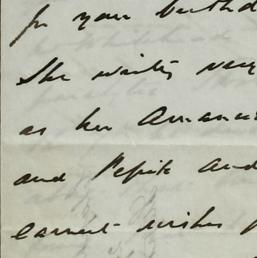 for your birthd
She writes very
as her Amanu
and Pepita and
earnest wishes f